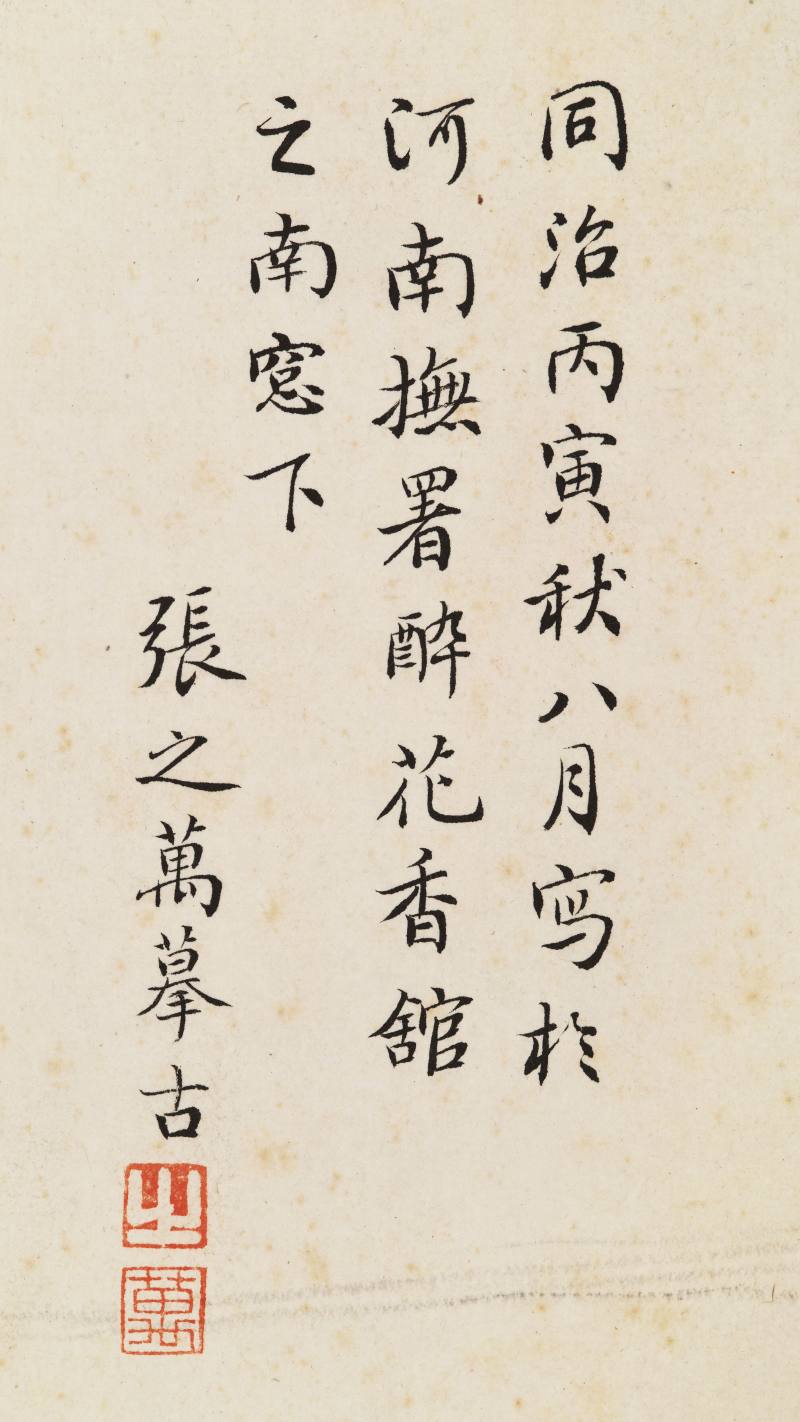 同治丙寅秋八月写於
河南撫署醉花香舘
之南窓下
張之萬摹古
之
萬